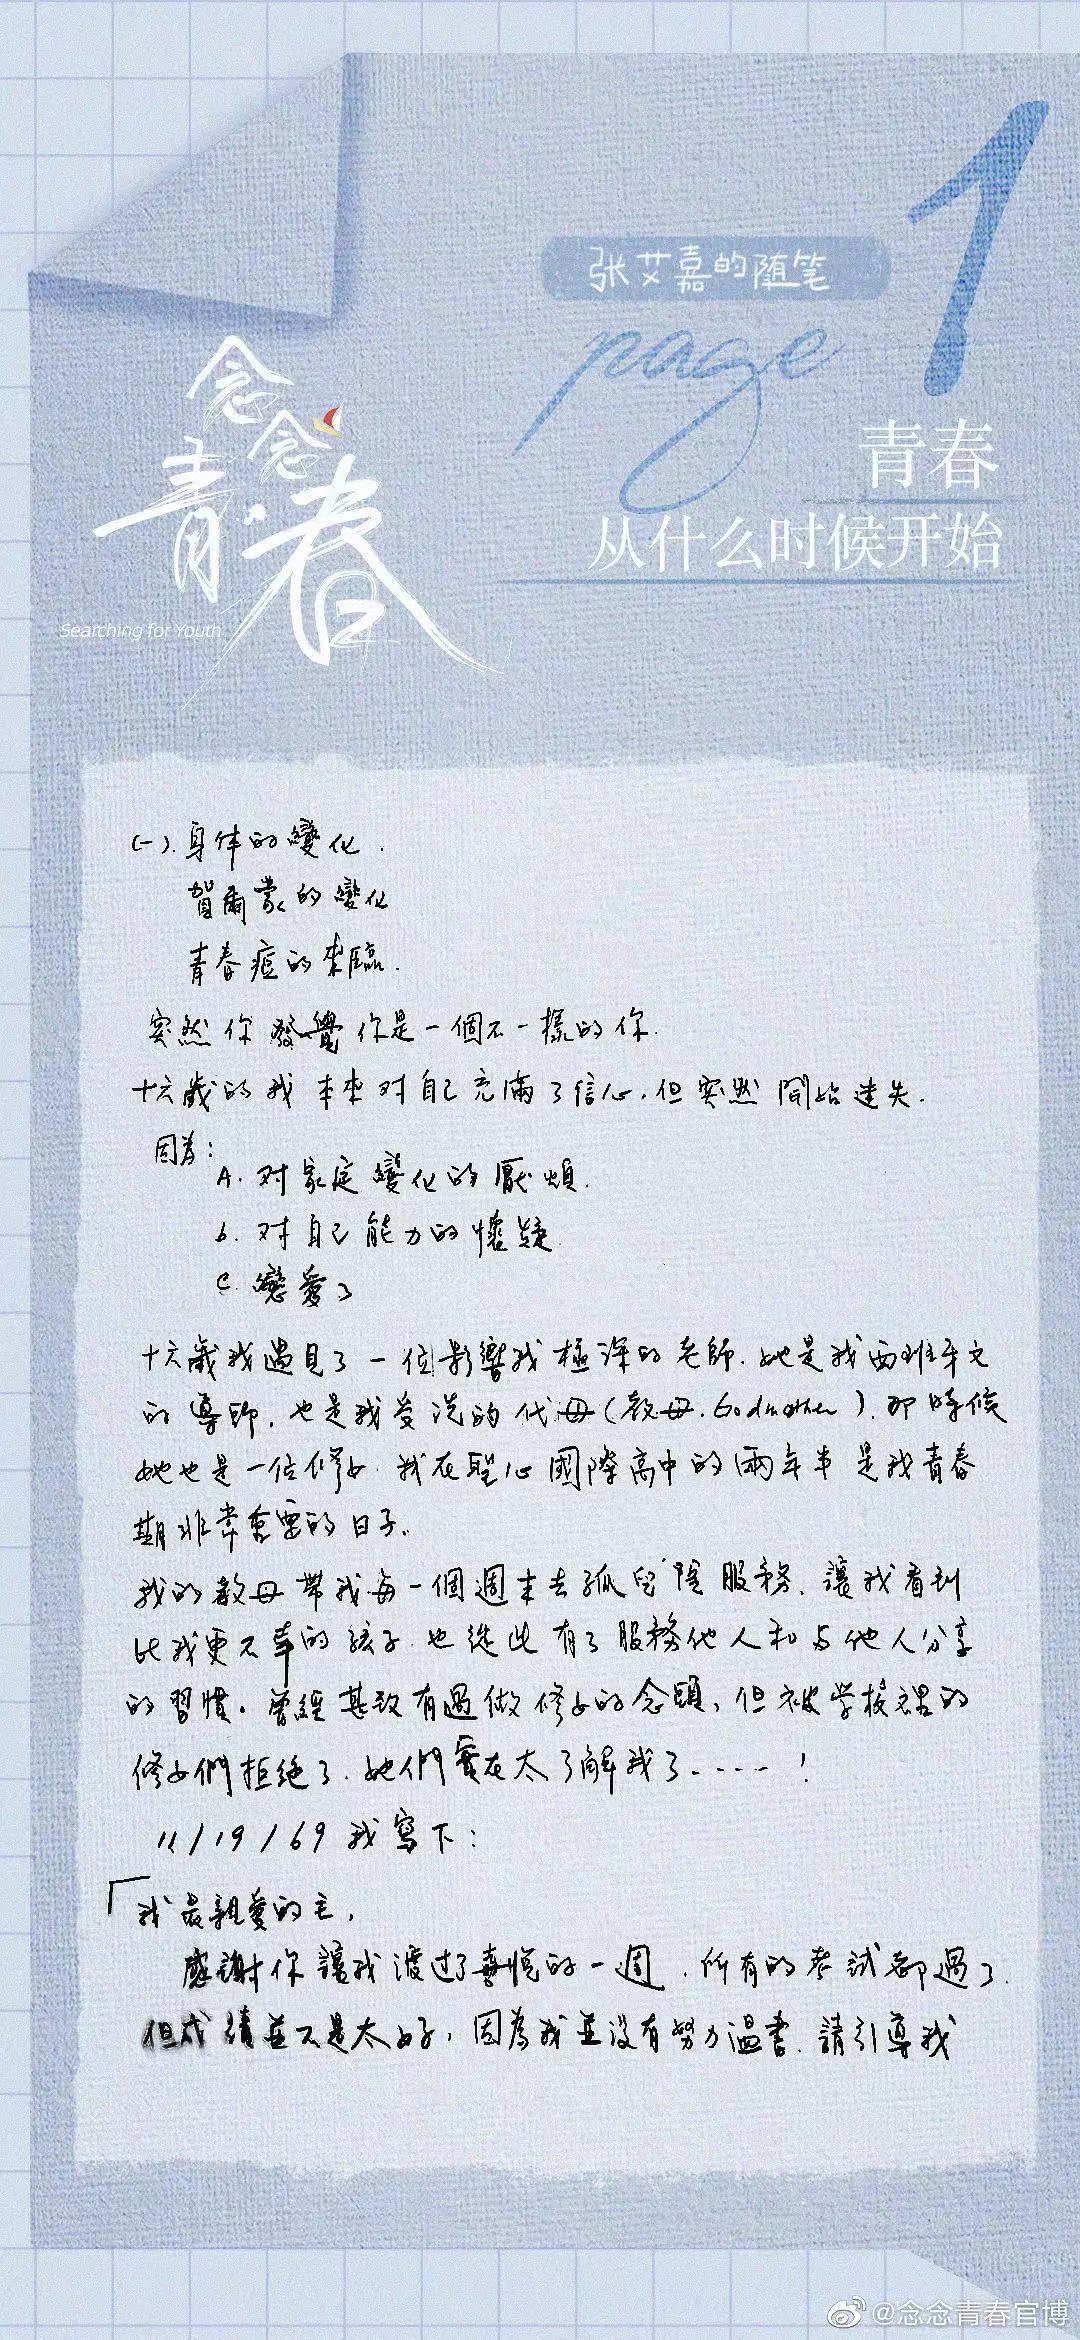 1
张艾嘉的随笔
page
念念
青春
Searching for Youth
青春
从什么时候开始
(一).身体的變化.
賀爾蒙的變化
青春痘的來臨.
突然你發覺你是一個不一樣的你.
十六歲的我本來对自己充滿了信心.但突然開始迷失.
因為:
A.对家庭變化的厭煩.
b.对自己能力的懷疑
C.戀愛了
十六歲我遇見了一位影響我極深的老師.她是我西班牙文
的導師.也是我受洗的代母(教母.Godmother).那時候
她也是一位修女.我在聖心國際高中的兩年半是我青春
期非常重要的日子.
我的教母帶我每一個週末去孤兒院服務.讓我看到
比我更不幸的孩子.也從此有了服務他人和与他人分享
的習慣。曾經甚致有過做修女的念頭,但被学校裡的
修女們拒绝了.她們實在太了解我了.....!
11/19/69我寫下:
「我最親愛的主,
感謝你讓我渡过了喜悅的一週.所有的考試都過了.
但成績並不是太好,因為我並没有努力温書.請引導我
@念念青春官博